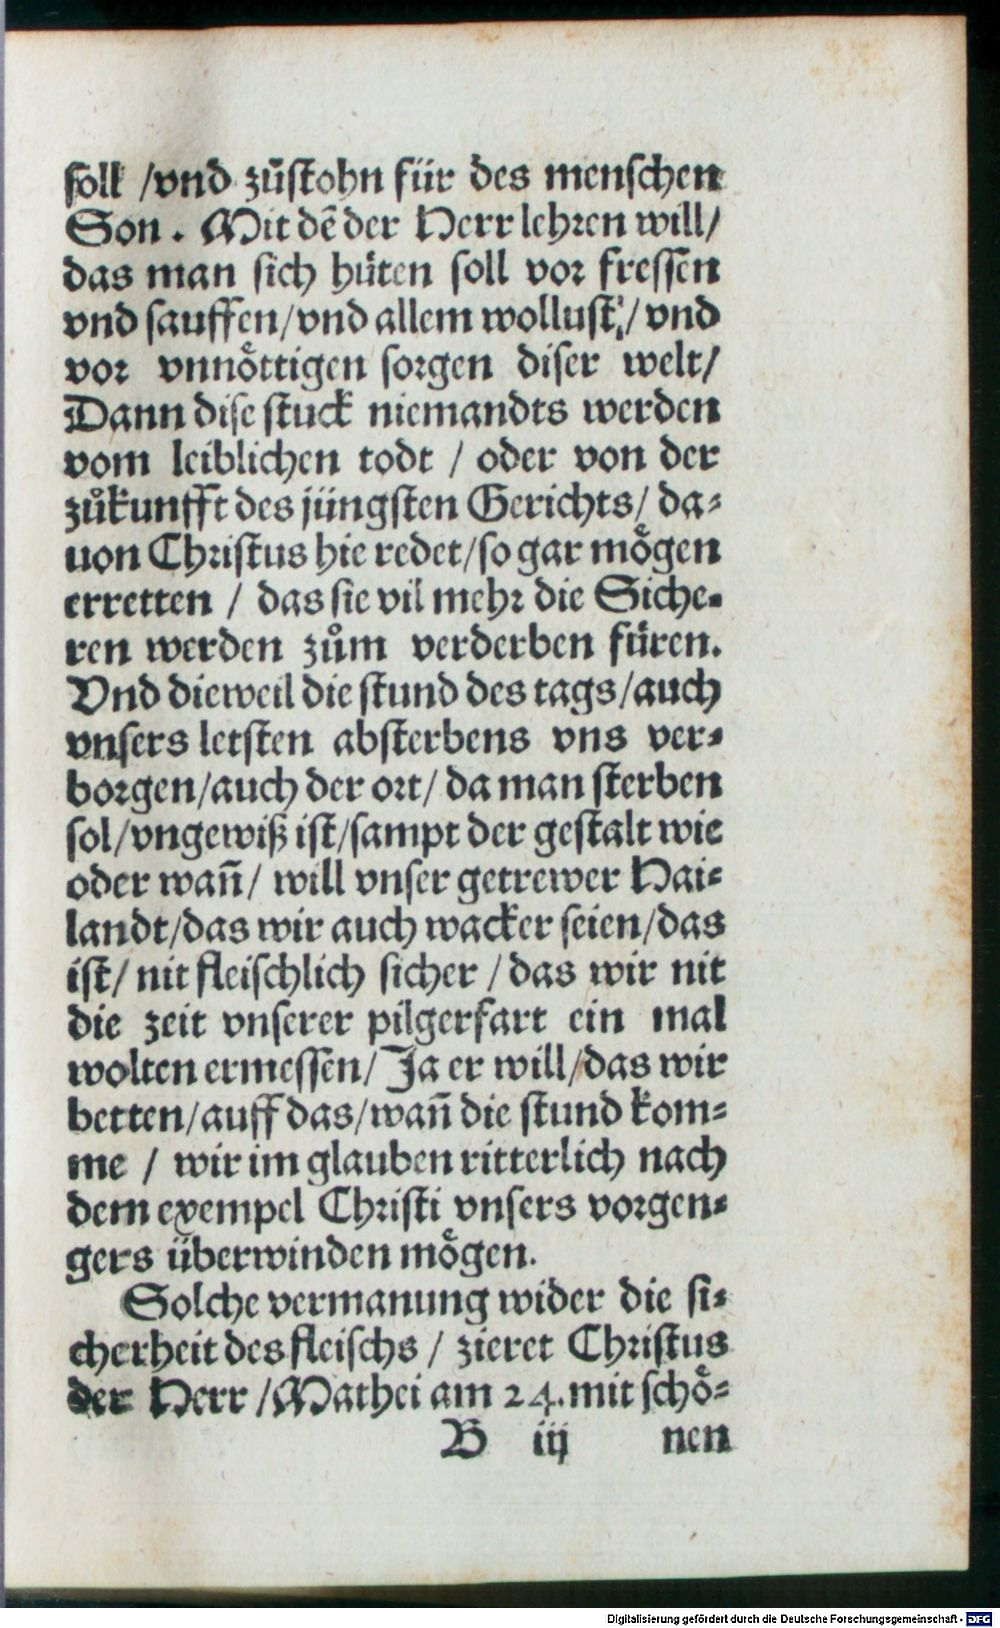 soll /vnd zůstohn für des menschen
Son. Mit dē der Herr lehren will/
das man sich hüten soll vor fressen
vnd sauffen/vnd allem wollust/vnd
vor vnnöttigen sorgen diser welt/
Dann dise stuck niemandts werden
vom leiblichen todt / oder von der
zůkunfft des jüngsten Gerichts/ da-
uon Christus hie redet/so gar mögen
erretten / das sie vil mehr die Siche-
ren werden zům verderben füren.
Vnd dieweil die stund des tags/auch
vnsers letsten absterbens vns ver-
borgen/auch der ort/ da man sterben
sol/vngewiß ist/sampt der gestalt wie
oder wañ/ will vnser getrewer Hai-
landt/das wir auch wacker seien/das
ist/ nit fleischlich sicher / das wir nit
die zeit vnserer pilgerfart ein mal
wolten ermessen/ Ja er will/das wir
betten/auff das/wañ die stund kom-
me / wir im glauben ritterlich nach
dem exempel Christi vnsers vorgen-
gers überwinden mögen.
Solche vermanung wider die si-
cherheit des fleischs / zieret Christus
der Herr /Mathei am 24. mit schö-
B iij nen
Digitalisierung gefördert durch die Deutsche Forschungsgemeinschaft - DFG